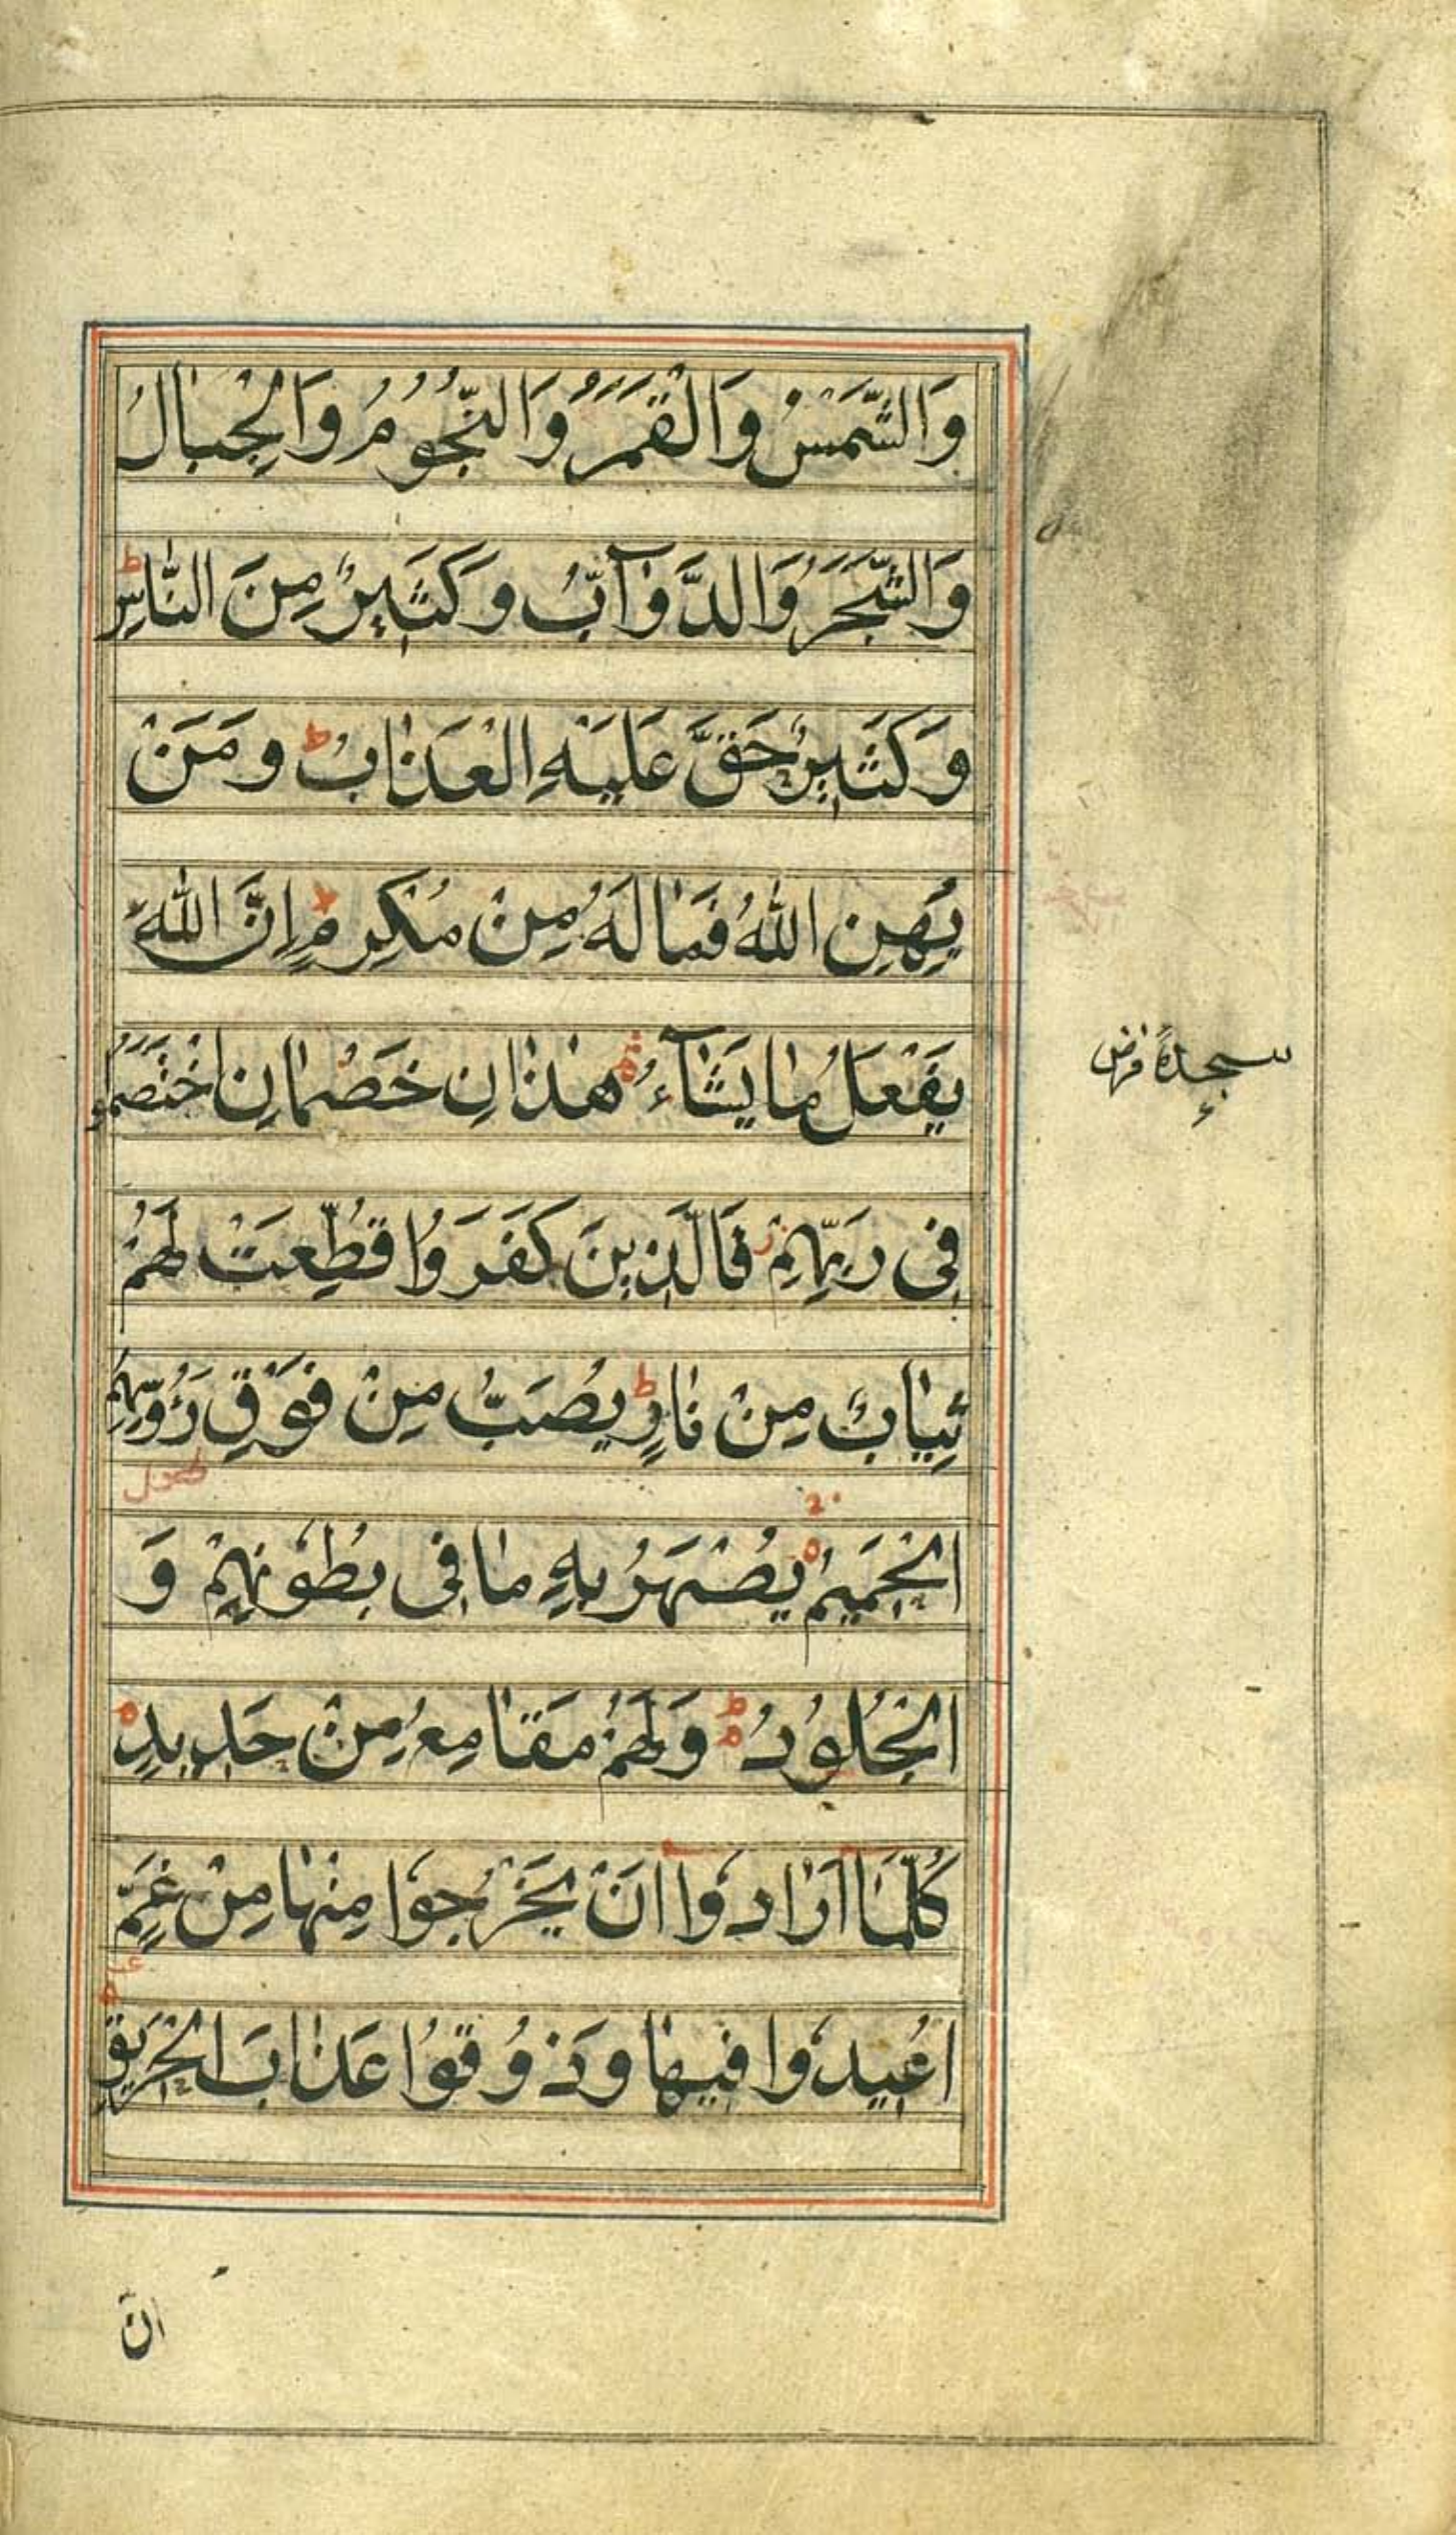 وَالشَّمْسُ وَالْقَمَرُ وَالنُّجُوْمُ وَالْجِبَالُ
وَالشَّجَرُ وَالدَّوَآبُّ وَكَثِيْرٌ مِنَ النَّاسِ ط
وَكَثِيْرٌ حَقَّ عَلَيْهِ الْعَذَابُ ط وَمَنْ
يُهِنِ اللّٰهُ فَمَا لَهُ مِنْ مُكْرِمٍ ط اِنَّ اللّٰهَ
يَفْعَلُ مَا يَشَآءُ هٰذَانِ خَصْمَانِ اخْتَصَمُوا
سجدهٔ فرض
فِى رَبِّهِمْ ز فَالَّذِيْنَ كَفَرُوْا قُطِّعَتْ لَهُمْ
ثِيَابٌ مِنْ نَارٍ ط يُصَبُّ مِنْ فَوْقِ رَؤُسِهِمُ
الْحَمِيْمُ يُصْهَرُ بِهٖ مَا فِى بُطُوْنِهِمْ وَ
الْجُلُوْدُ ط وَلَهُمْ مَقَامِعُ مِنْ حَدِيْدٍ
كُلَّمَا اَرَادُوْا اَنْ يَخْرُجُوْا مِنْهَا مِنْ غَمٍّ
اُعِيْدُوْا فِيْهَا وَذُوْقُوْا عَذَابَ الْحَرِيْقِ
انّ